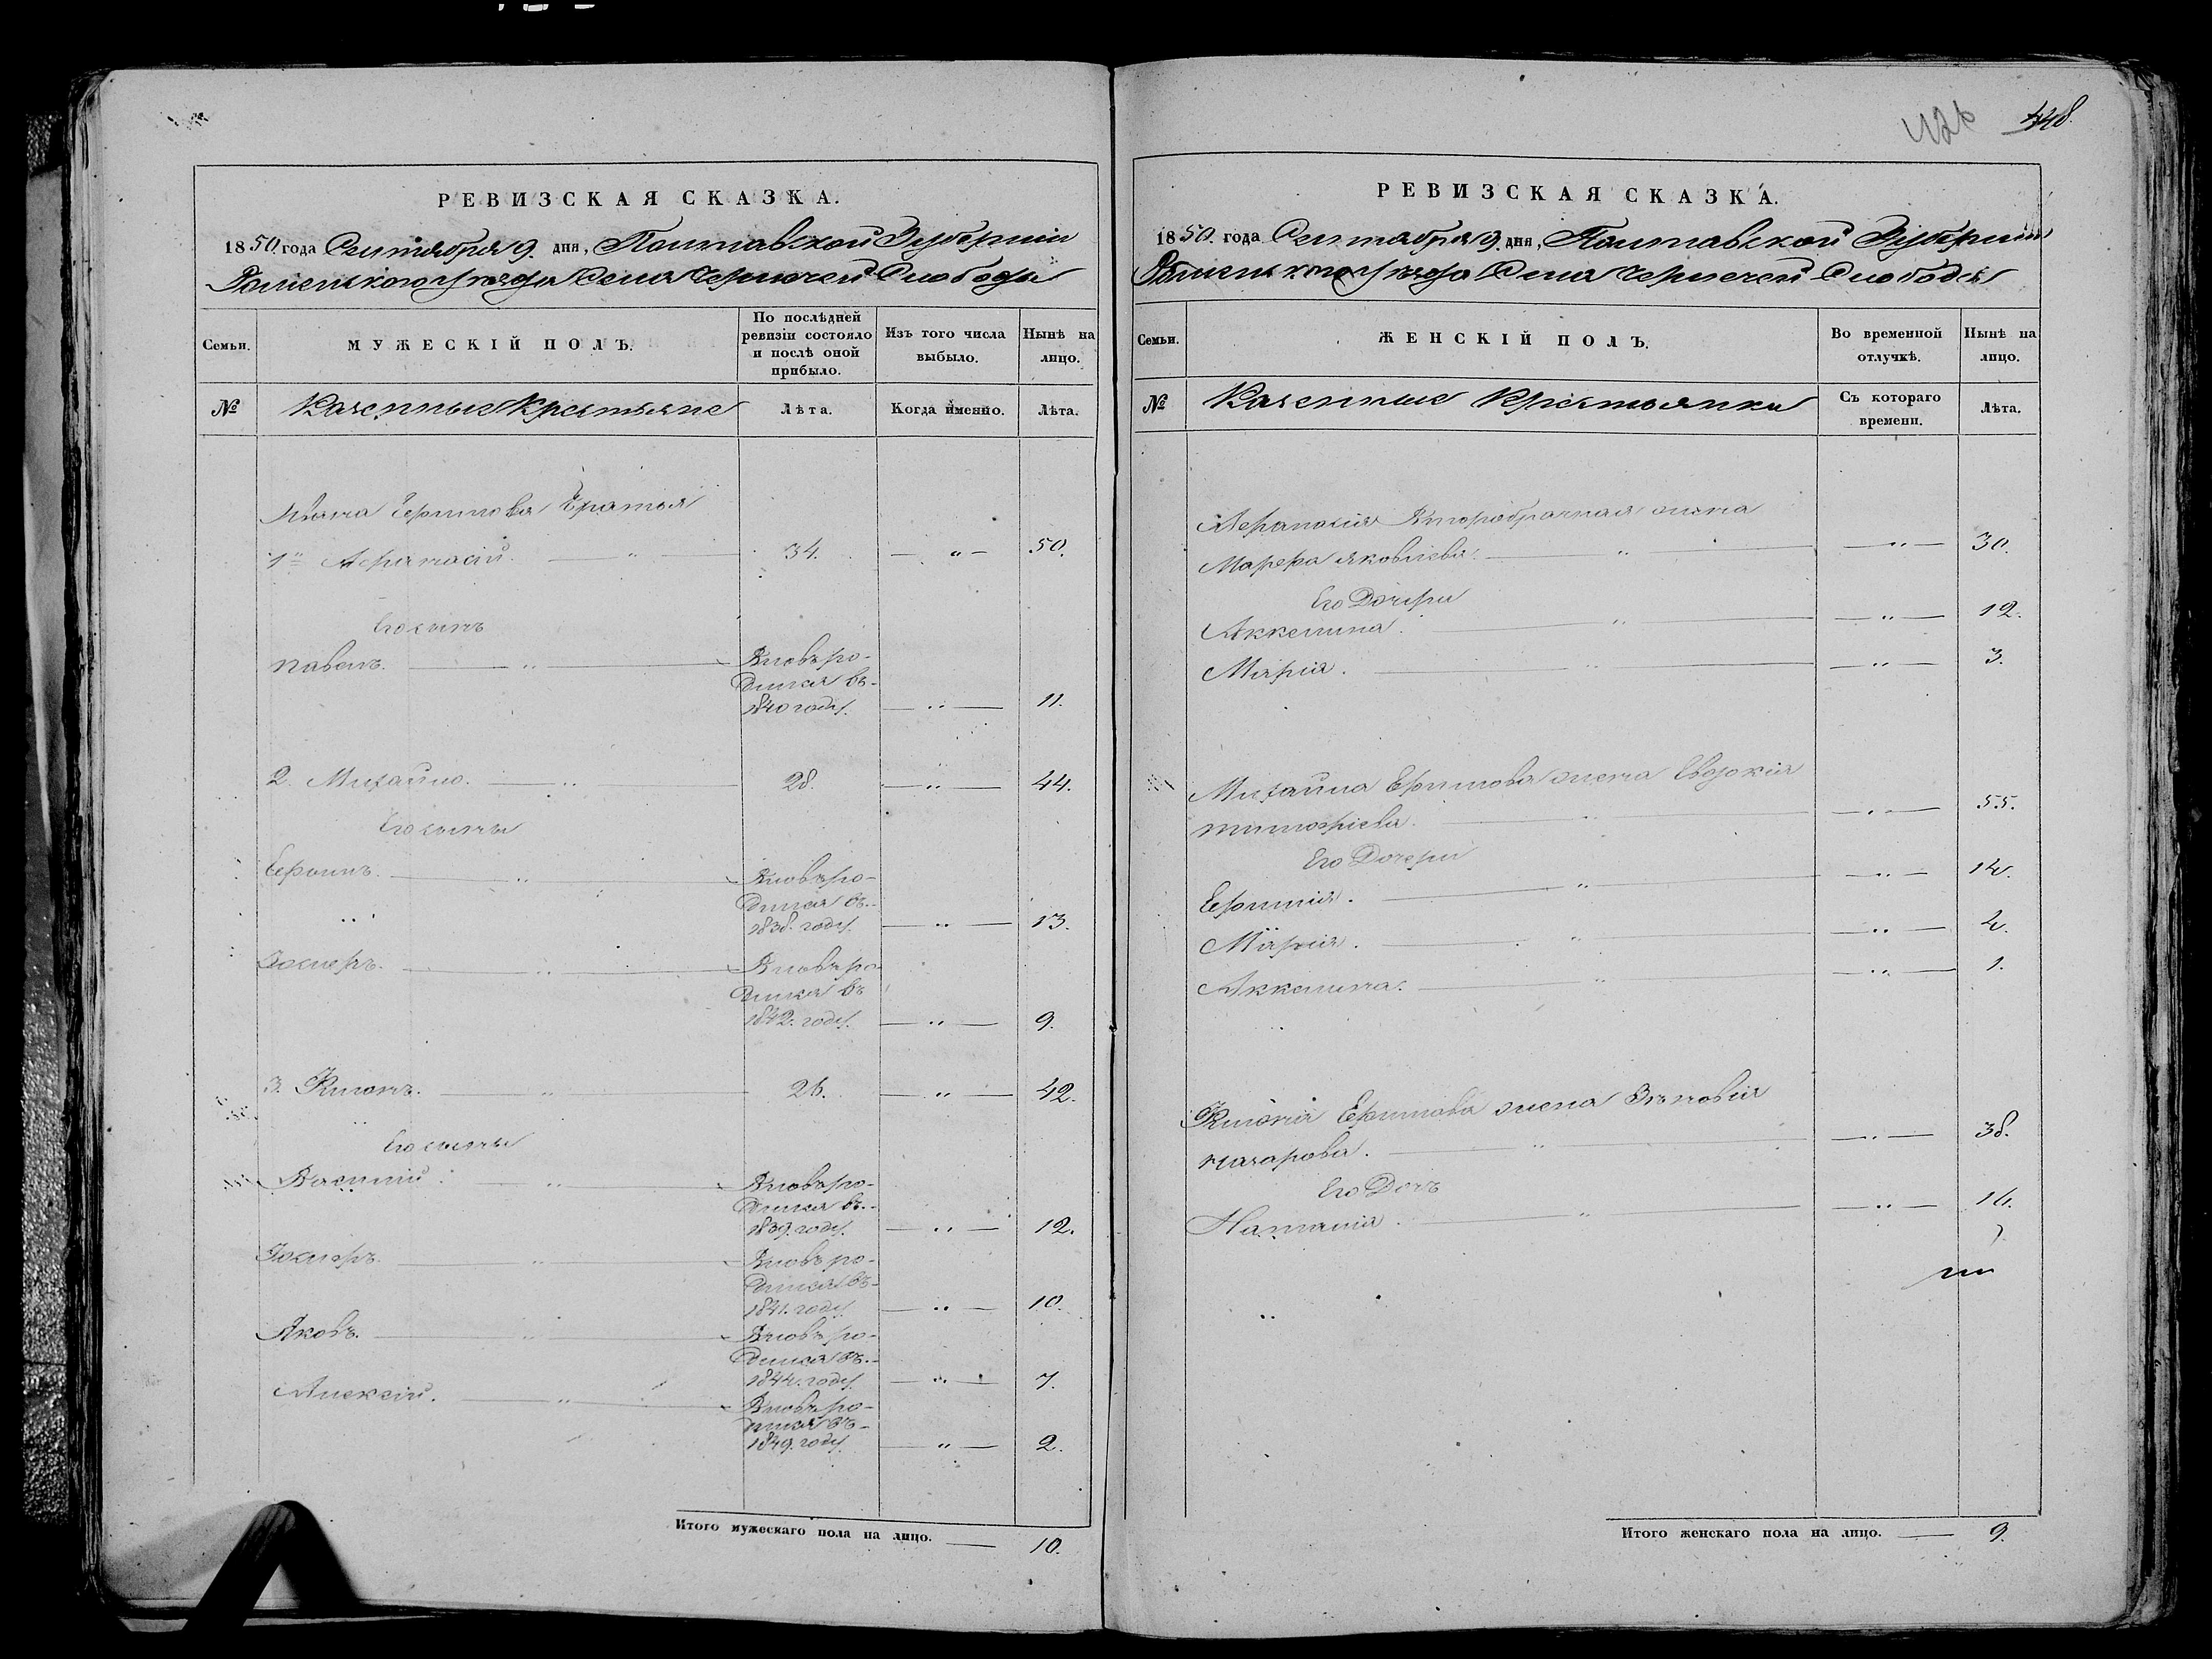 РЕВИЗСКАЯ СКАЗКА.
1850 года Сентября 9. дня, Полтавской Губерніи
Роменского уѣзда Села Чернечей Слободы
Семьи.
МУЖЕСКІЙ ПОЛЪ.
По послѣдней ревизіи состояло и послѣ оной прибыло.
Изъ того числа выбыло.
Нынѣ на лицо.
№
Казенные Крестьяне
Лѣта.
Когда именно.
Лѣта.
Ивана Ефимова братья
1й Афанасій. — " — 34. — " — 50.
Его сынъ
Павелъ. — " — Вновь ро-
дился въ
1840 году. — " — 11.
2. Михайло. — " — 28. — " — 44.
Его сыны
Ефимъ. — " — Вновь ро-
дился въ
1838. году. — " — 13.
Іосифъ. — " — Вновь ро-
дился въ
1842. году. — " — 9.
3. Клионъ. — " — 26. — " — 42.
Его сыны
Василій. — " — Вновь ро-
дился въ
1839. году. — " — 12.
Іосифъ. — " — Вновь ро-
дился въ
1841. году. — " — 10.
Яковъ. — " — Вновь ро-
дился въ
1844. году. — " — 7.
Алексій. — " — Вновь ро-
дился въ
1849. году. — " — 2.
Итого мужескаго пола на лицо. — 10.
426 448.
РЕВИЗСКАЯ СКАЗКА.
1850. года Сентября 9. дня, Полтавской Губерніи
Роменского уѣзда Села Чернечей Слободы
Семьи.
ЖЕНСКІЙ ПОЛЪ.
Во временной отлучкѣ.
Нынѣ на лицо.
№
Казенные Крестьянки
Съ котораго времени.
Лѣта.
Афанасія Второбрачная жена
Марфа Яковлева. — " — 30.
Его Дочери
Аккелина. — " — 12.
Марія. — " — 3.
Михайла Ефимова жена Евдокія
Тимофіева. — " — 35.
Его Дочери
Ефимія. — " — 14.
Марія. — " — 4.
Аккелина. — " — 1.
Ефимова жена Зѣновія
Назарова. — " — 38.
Его Дочь
Наталія. — " — 14.
Итого женскаго пола на лицо. — 9.